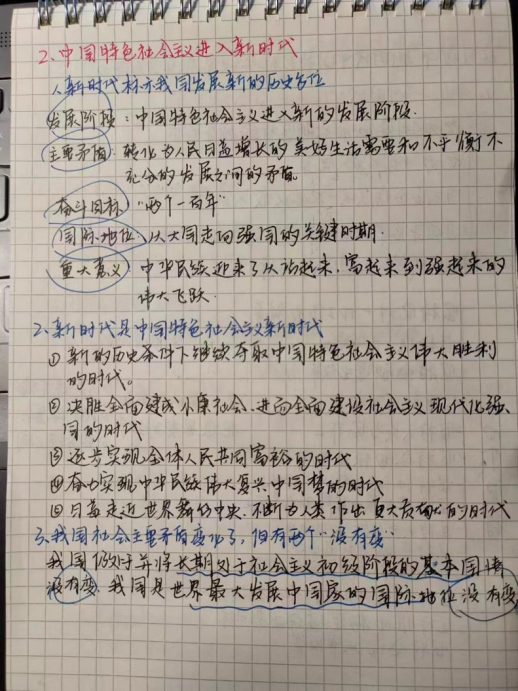 2、中国特色社会主义进入新时代
1、新时代标示我国发展新的历史方位
发展阶段：中国特色社会主义进入新的发展阶段.
主要矛盾：转化为人民日益增长的美好生活需要和不平衡不
充分的发展之间的矛盾
奋斗目标 "两个一百年"
国际地位 从大国走向强国的关键时期.
重大意义 中华民族迎来了从站起来、富起来到强起来的
伟大飞跃.
2、新时代是中国特色社会主义新时代
① 新的历史条件下继续夺取中国特色社会主义伟大胜利
的时代。
② 决胜全面建成小康社会、进而全面建设社会主义现代化强
国的时代
③ 逐步实现全体人民共同富裕的时代
④ 奋力实现中华民族伟大复兴中国梦的时代
⑤ 日益走近世界舞台中央、不断为人类作出更大贡献的时代
3、我国社会主要矛盾变化了，但有两个"没有变"
我国仍处于并将长期处于社会主义初级阶段的基本国情
没有变，我国是世界最大发展中国家的国际地位没有变